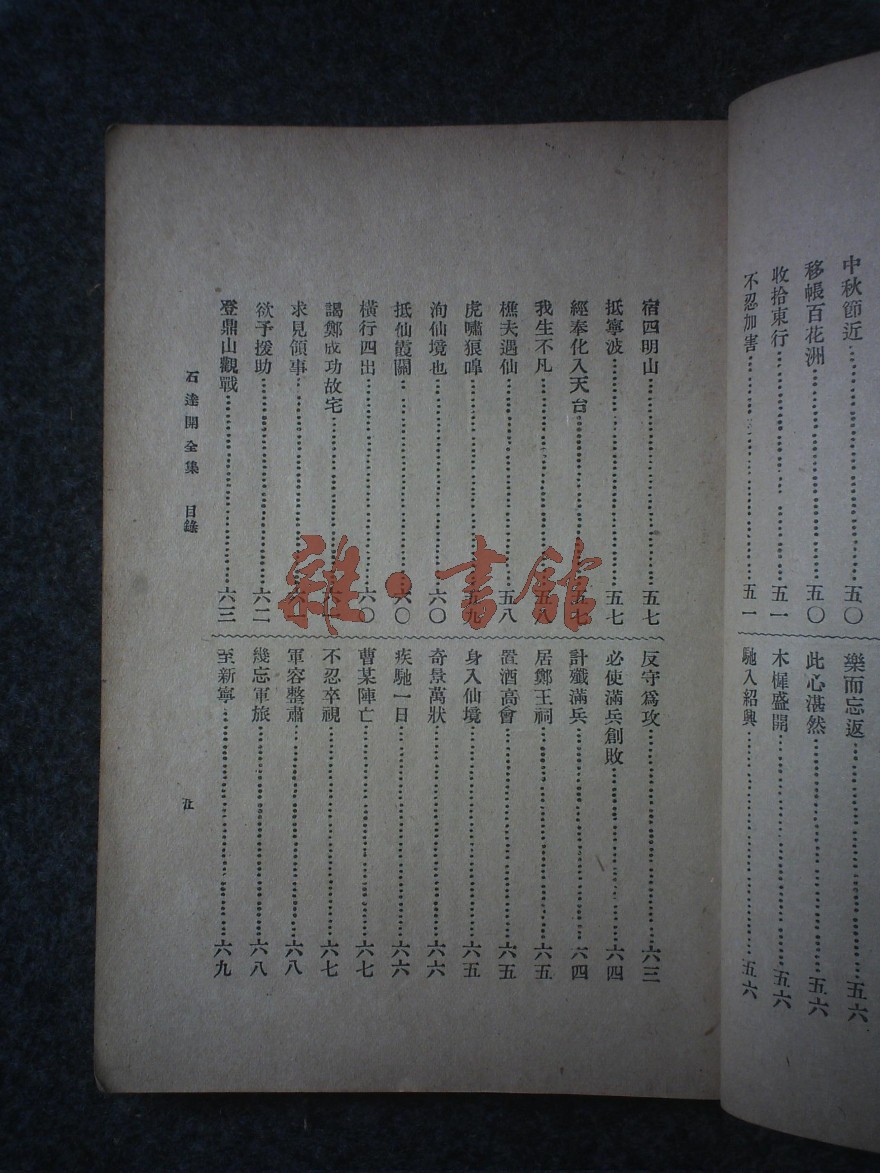 中秋節近 五〇
移帳百花洲 五〇
收拾東行 五一
不忍加害 五一
樂而忘返 五六
此心湛然 五六
木樨盛開 五六
馳入紹興 五六
宿四明山 五七
抵寧波 五七
經奉化入天台 五七
我生不凡 五八
樵夫遇仙 五八
虎嘯狼嘷 五九
洵仙境也 六〇
抵仙霞關 六〇
橫行四出 六〇
謁鄭成功故宅 六一
求見領事 六一
欲予援助 六二
登鼎山觀戰 六三
反守爲攻 六三
必使滿兵創敗 六四
計殲滿兵 六四
居鄭王祠 六五
置酒高會 六五
身入仙境 六五
奇景萬狀 六六
疾馳一日 六六
曹某陣亡 六七
不忍卒視 六七
軍容整肅 六八
幾忘軍旅 六八
至新寧 六九
石達開全集 目錄
五
雜·書館